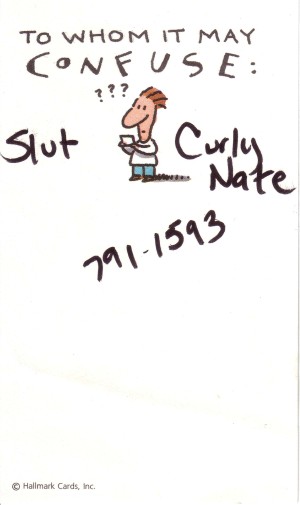 TO WHOM IT MAY
CONFUSE:
???
Slut Curly
Nate
791-1593
© Hallmark Cards, Inc.